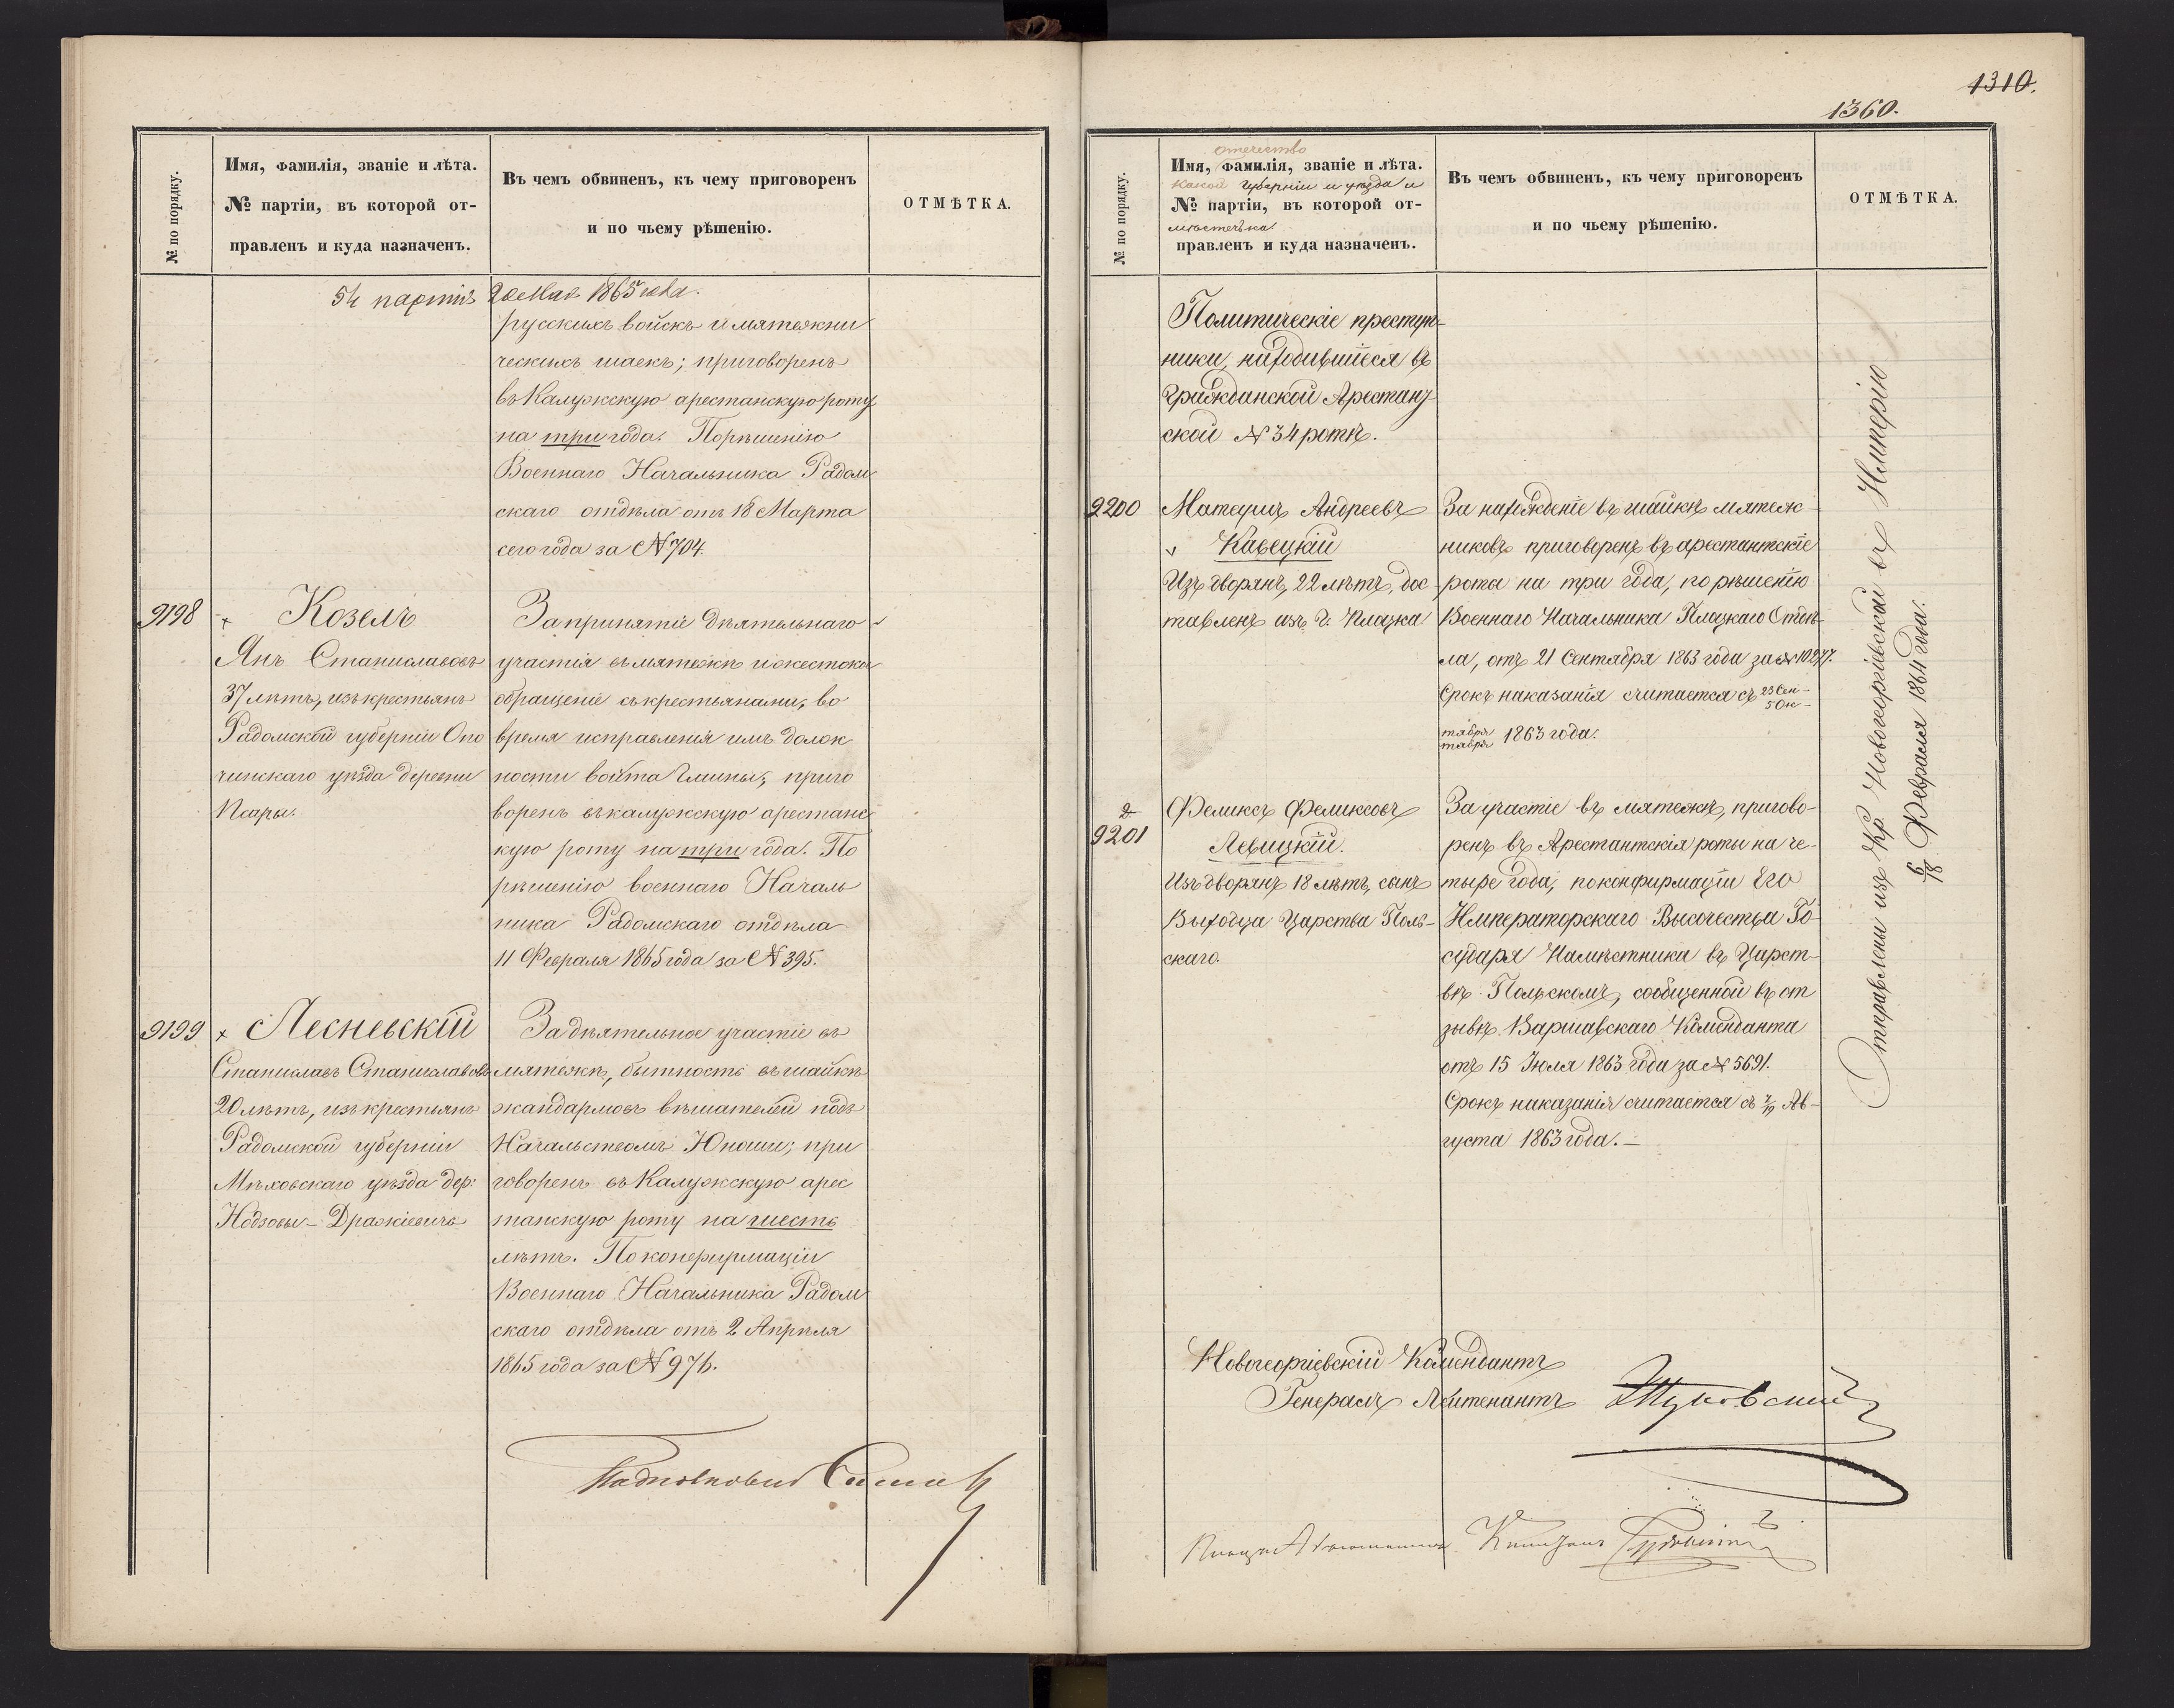 № по порядку.
Имя, фамилія, званіе и лѣта.
№ партіи, въ которой от-
правленъ и куда назначенъ.
Въ чемъ обвиненъ, къ чему приговоренъ
и по чьему рѣшенію.
ОТМѢТКА.
54 партія 20 Мая 1865 года.
русскихъ войскъ и мятежни
ческихъ шаекъ; приговоренъ
въ Калужскую арестанскую роту
на три года. По рѣшенію
Военнаго Начальника Радом
скаго отдѣла отъ 18 Марта
сего года за № 704.
9198
+ Козелъ
Янъ Станиславовъ
37 лѣтъ, изъ крестьянъ
Радомской губерніи Опо
чинскаго уѣзда деревни
Псары.
За принятіе дѣятельнаго
участія въ мятежѣ и жестокое
обращеніе съ крестьянами, во
время исправленія имъ долж
ности войта Гмины; приго
воренъ въ калужскую арестанс
кую роту на три года. По
рѣшенію военнаго Началь
ника Радомскаго отдѣла
11 Февраля 1865 года за № 395.
9199
+ Лесневскій
Станиславъ Станиславовъ
20 лѣтъ, изъ крестьянъ
Радомской губерніи
Мѣховскаго уѣзда дер:
За дѣятельное участіе въ
мятежѣ, бытность въ шайкѣ
жандармовъ вѣшателей подъ
Начальствомъ Юноши; при
говоренъ въ Калужскую арес
танскую роту на шесть
лѣтъ. По конфирмаціи
Военнаго Начальника Радом
скаго отдѣла отъ 2 Апрѣля
1865 года за № 976.
1310.
1360.
№ по порядку.
отечество
Имя, фамилія, званіе и лѣта.
какой губерніи и уѣзда и
№ партіи, въ которой от-
мѣстечка.
правленъ и куда назначенъ.
Въ чемъ обвиненъ, къ чему приговоренъ
и по чьему рѣшенію.
ОТМѢТКА.
Политическіе преступ-
ники, находившіеся въ
Гражданской Арестан-
ской № 34 ротѣ.
9200
Матеушъ Андреевъ
Кавецкій
Изъ дворянъ, 22 лѣтъ, дос-
тавленъ изъ г. Плоцка
За нахожденіе въ шайкѣ мятеж-
никовъ приговоренъ въ арестантскіе
роты на три года, по рѣшенію
Военнаго Начальника Плоцкаго Отдѣ-
ла, отъ 21 Сентября 1863 года за № 10277.
Срокъ наказанія считается съ 23 Сен-
5 Ок-
тября
тября 1863 года.
2
9201
Феликсъ Феликсовъ
Левицкій.
Изъ дворянъ 18 лѣтъ, сынъ
Выходца Царства Поль-
скаго.
За участіе въ мятежѣ, пригово-
ренъ въ Арестантскія роты на че-
тыре года, по конфирмаціи Его
Императорскаго Высочества Го-
сударя Намѣстника въ Царст-
вѣ Польскомъ, сообщенной въ от
зывѣ Варшавскаго Коменданта
отъ 15 Іюля 1863 года за № 5691.
Срокъ наказанія считается съ 7/19 Ав-
густа 1863 года. —
Отправлены изъ Кр. Новогеоргіевской въ Имперію
6/18 Февраля 1864 года.
Новогеоргіевскій Комендантъ
Генералъ Лейтенантъ